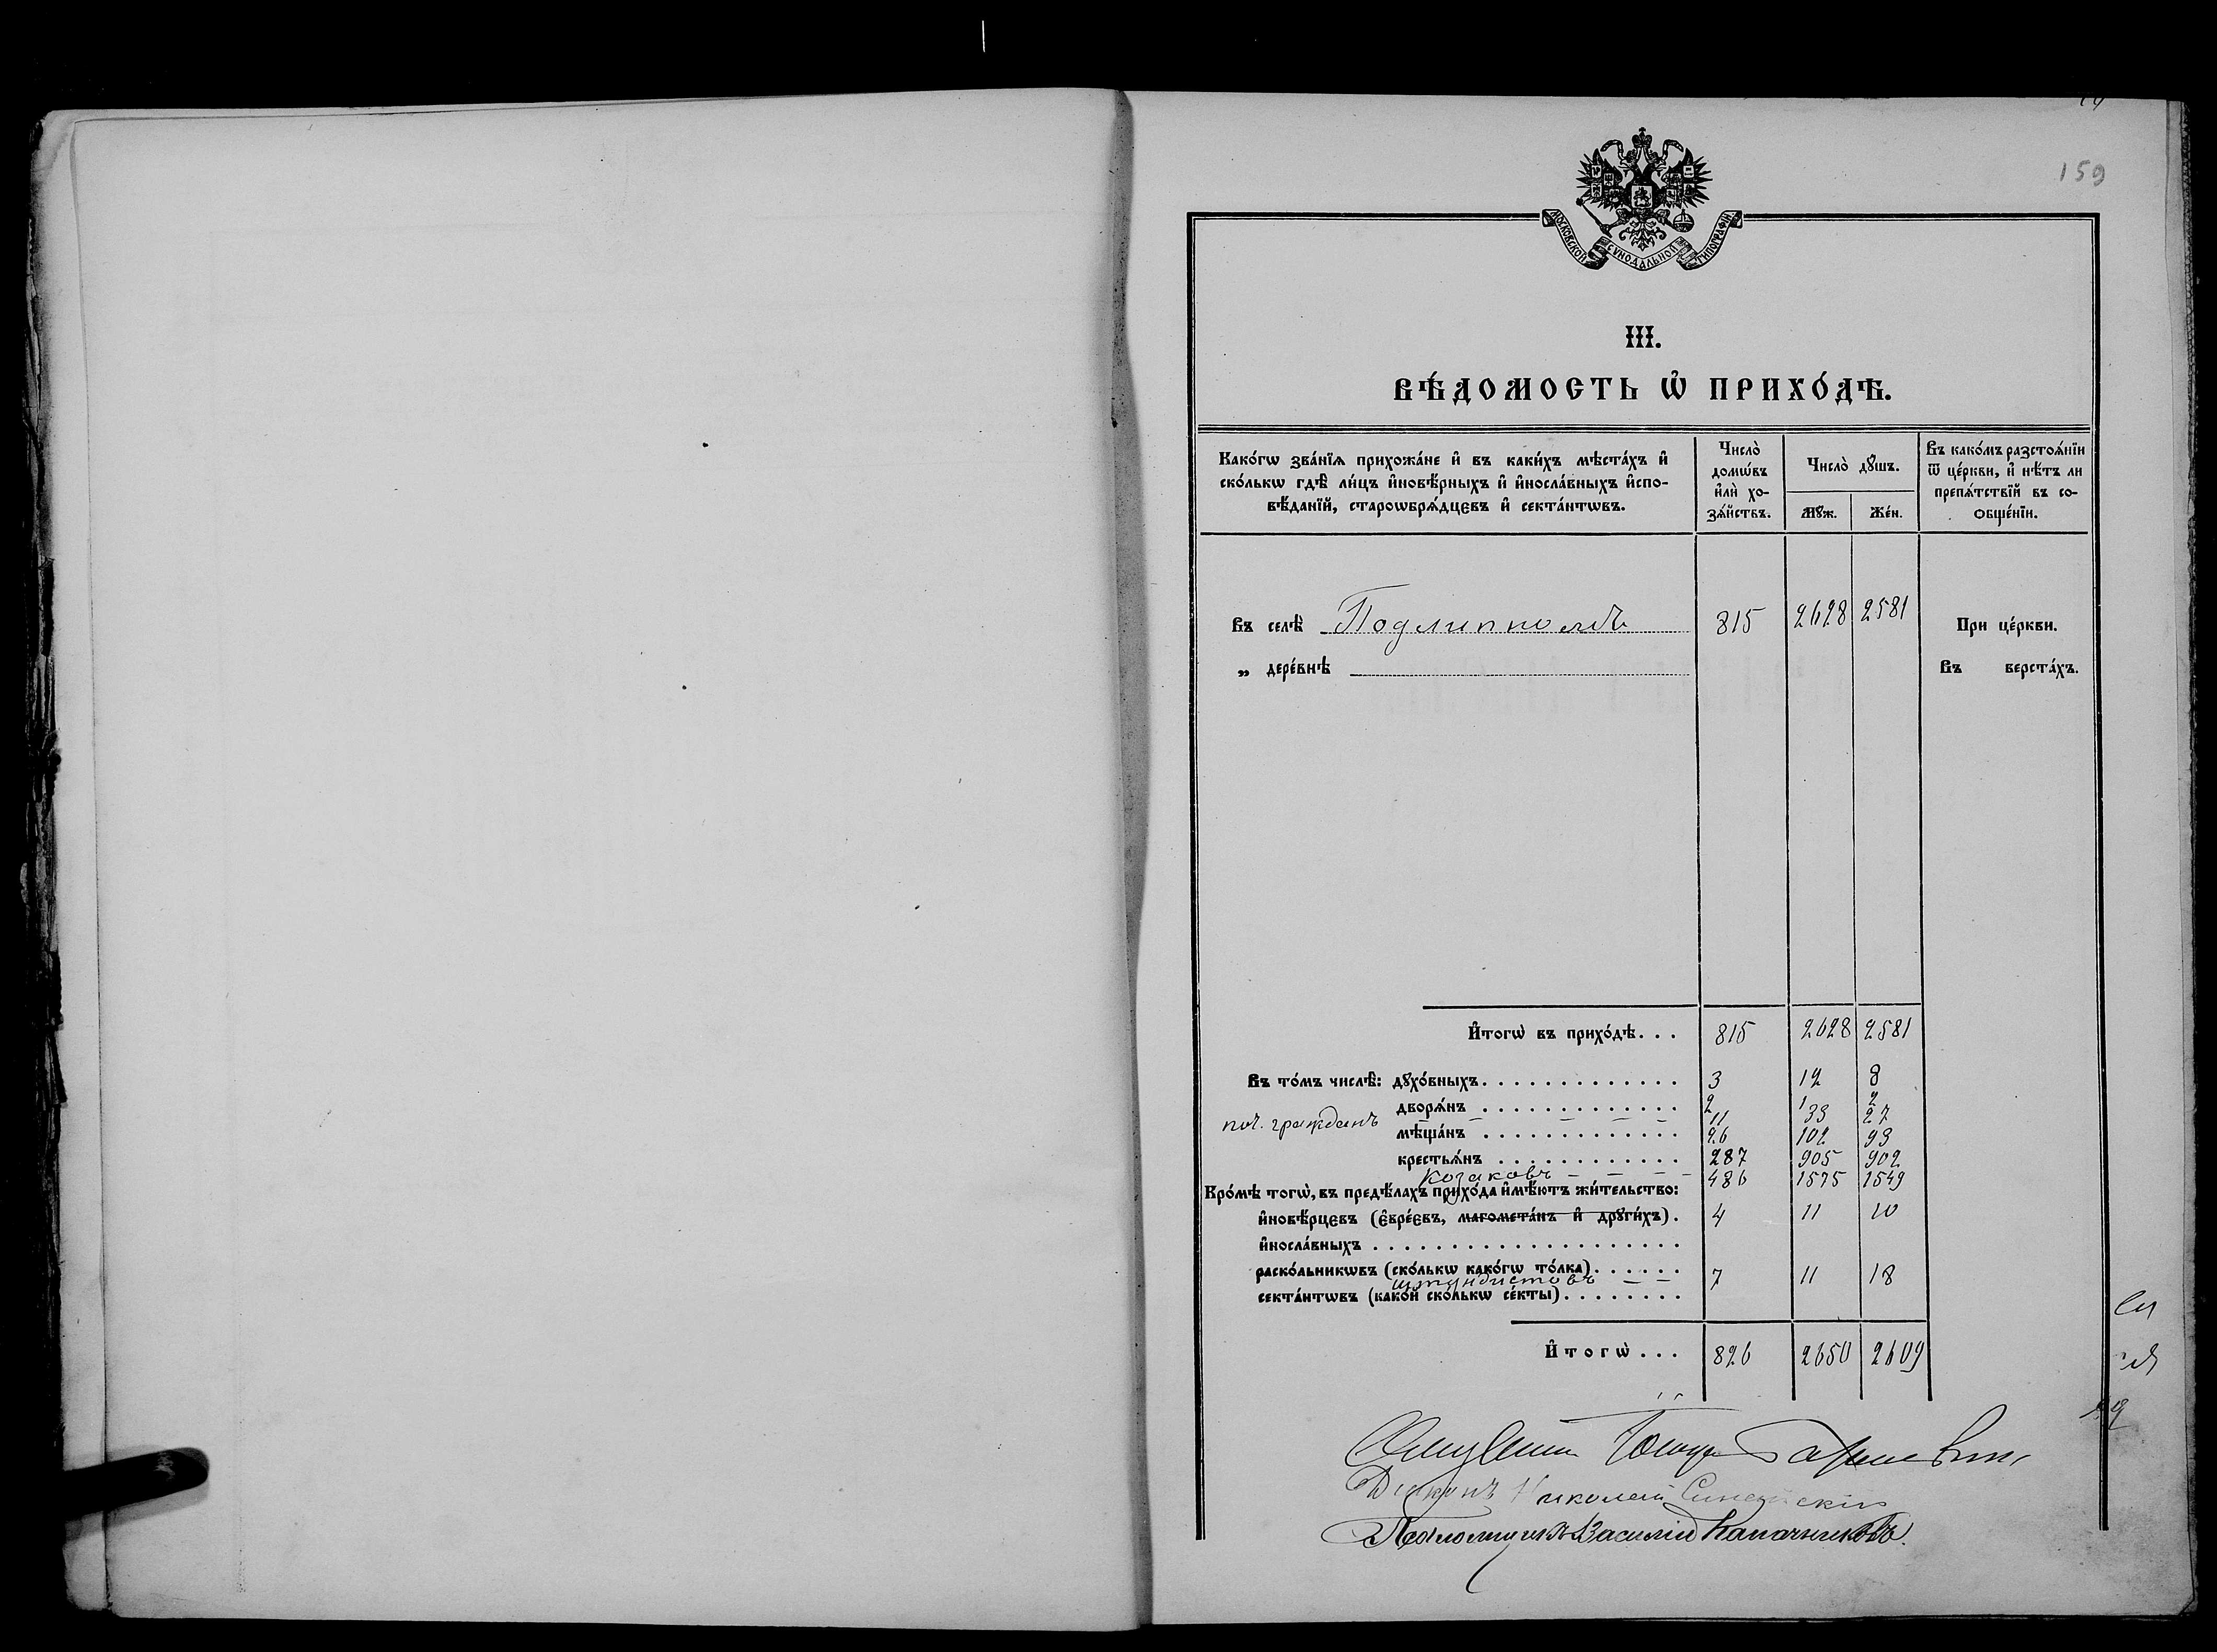 159
МОСКОВСКОЙ СѴНОДАЛЬНОЙ ТИПОГРАФІИ
III.
ВѢ́ДОМОСТЬ Ѡ҆ ПРИХО́ДѢ.
Како́гѡ зва́нїѧ прихожа́не и҆ въ каки́хъ мѣста́хъ и҆
ско́лькѡ гдѣ̀ ли́цъ и҆новѣ́рныхъ и҆ и҆носла́вныхъ и҆спо-
вѣ́данїй, староѡбрѧ́дцевъ и҆ секта́нтѡвъ.
Число̀
домѡ́въ
и҆лѝ хо-
зѧ́йствъ.
Число̀ дꙋ́шъ.
Мꙋж.
Же́н.
Въ како́мъ разстоѧ́нїи
ѿ це́ркви, и҆ нѣ́тъ ли
препѧ́тствїй въ со-
ѻбще́нїи.
Въ селѣ̀ Подлипномъ 815 2628 2581 При це́ркви.
„ дере́внѣ Въ верста́хъ.
И҆тогѡ̀ въ прихо́дѣ... 815 2628 2581
Въ то́мъ числѣ̀: дꙋхо́вныхъ 3 12 8
дворѧ́нъ 2 1 2
поч. гражданъ 11 33 27
мѣща́нъ 26 102 93
крестьѧ́нъ 287 905 902
козаковъ 486 1575 1549
Кро́мѣ тогѡ̀, въ предѣ́лахъ прихо́да и҆мѣ́ютъ жи́тельство:
и҆новѣ́рцевъ (є҆вре́євъ, магомета́нъ и҆ дрꙋги́хъ). 4 11 10
и҆носла́вныхъ
раско́льникѡвъ (ско́лькѡ како́гѡ то́лка)
штундистовъ 7 11 18
секта́нтѡвъ (како́й ско́лькѡ се́кты)
И҆тогѡ̀... 826 2650 2609
Діаконъ Николай
Псаломщикъ Василій